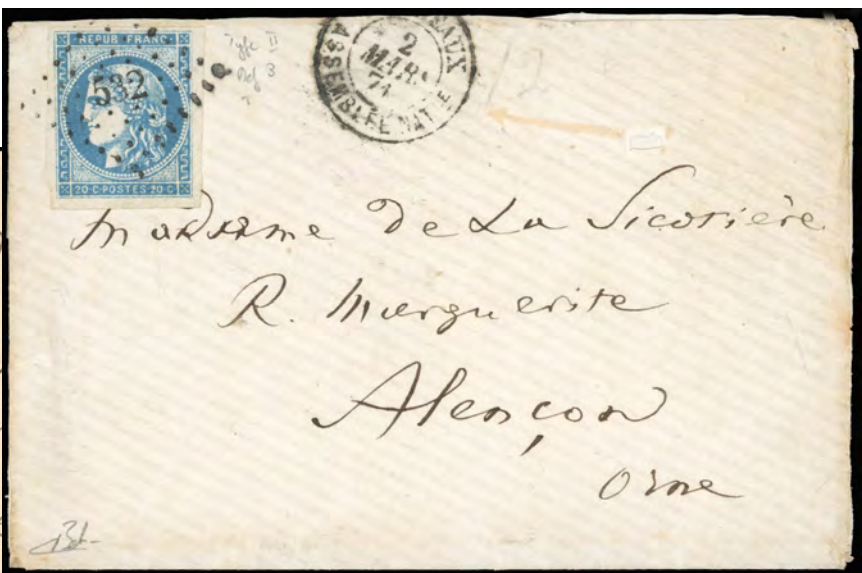 REPUB·FRANC·
532
20·C·POSTES·20·C
Type II
3
EAUX
2
MARS
71
ASSEMBLÉE NATLE
12
Madame De La Sicotière
R. Marguerite
Alençon
Orne